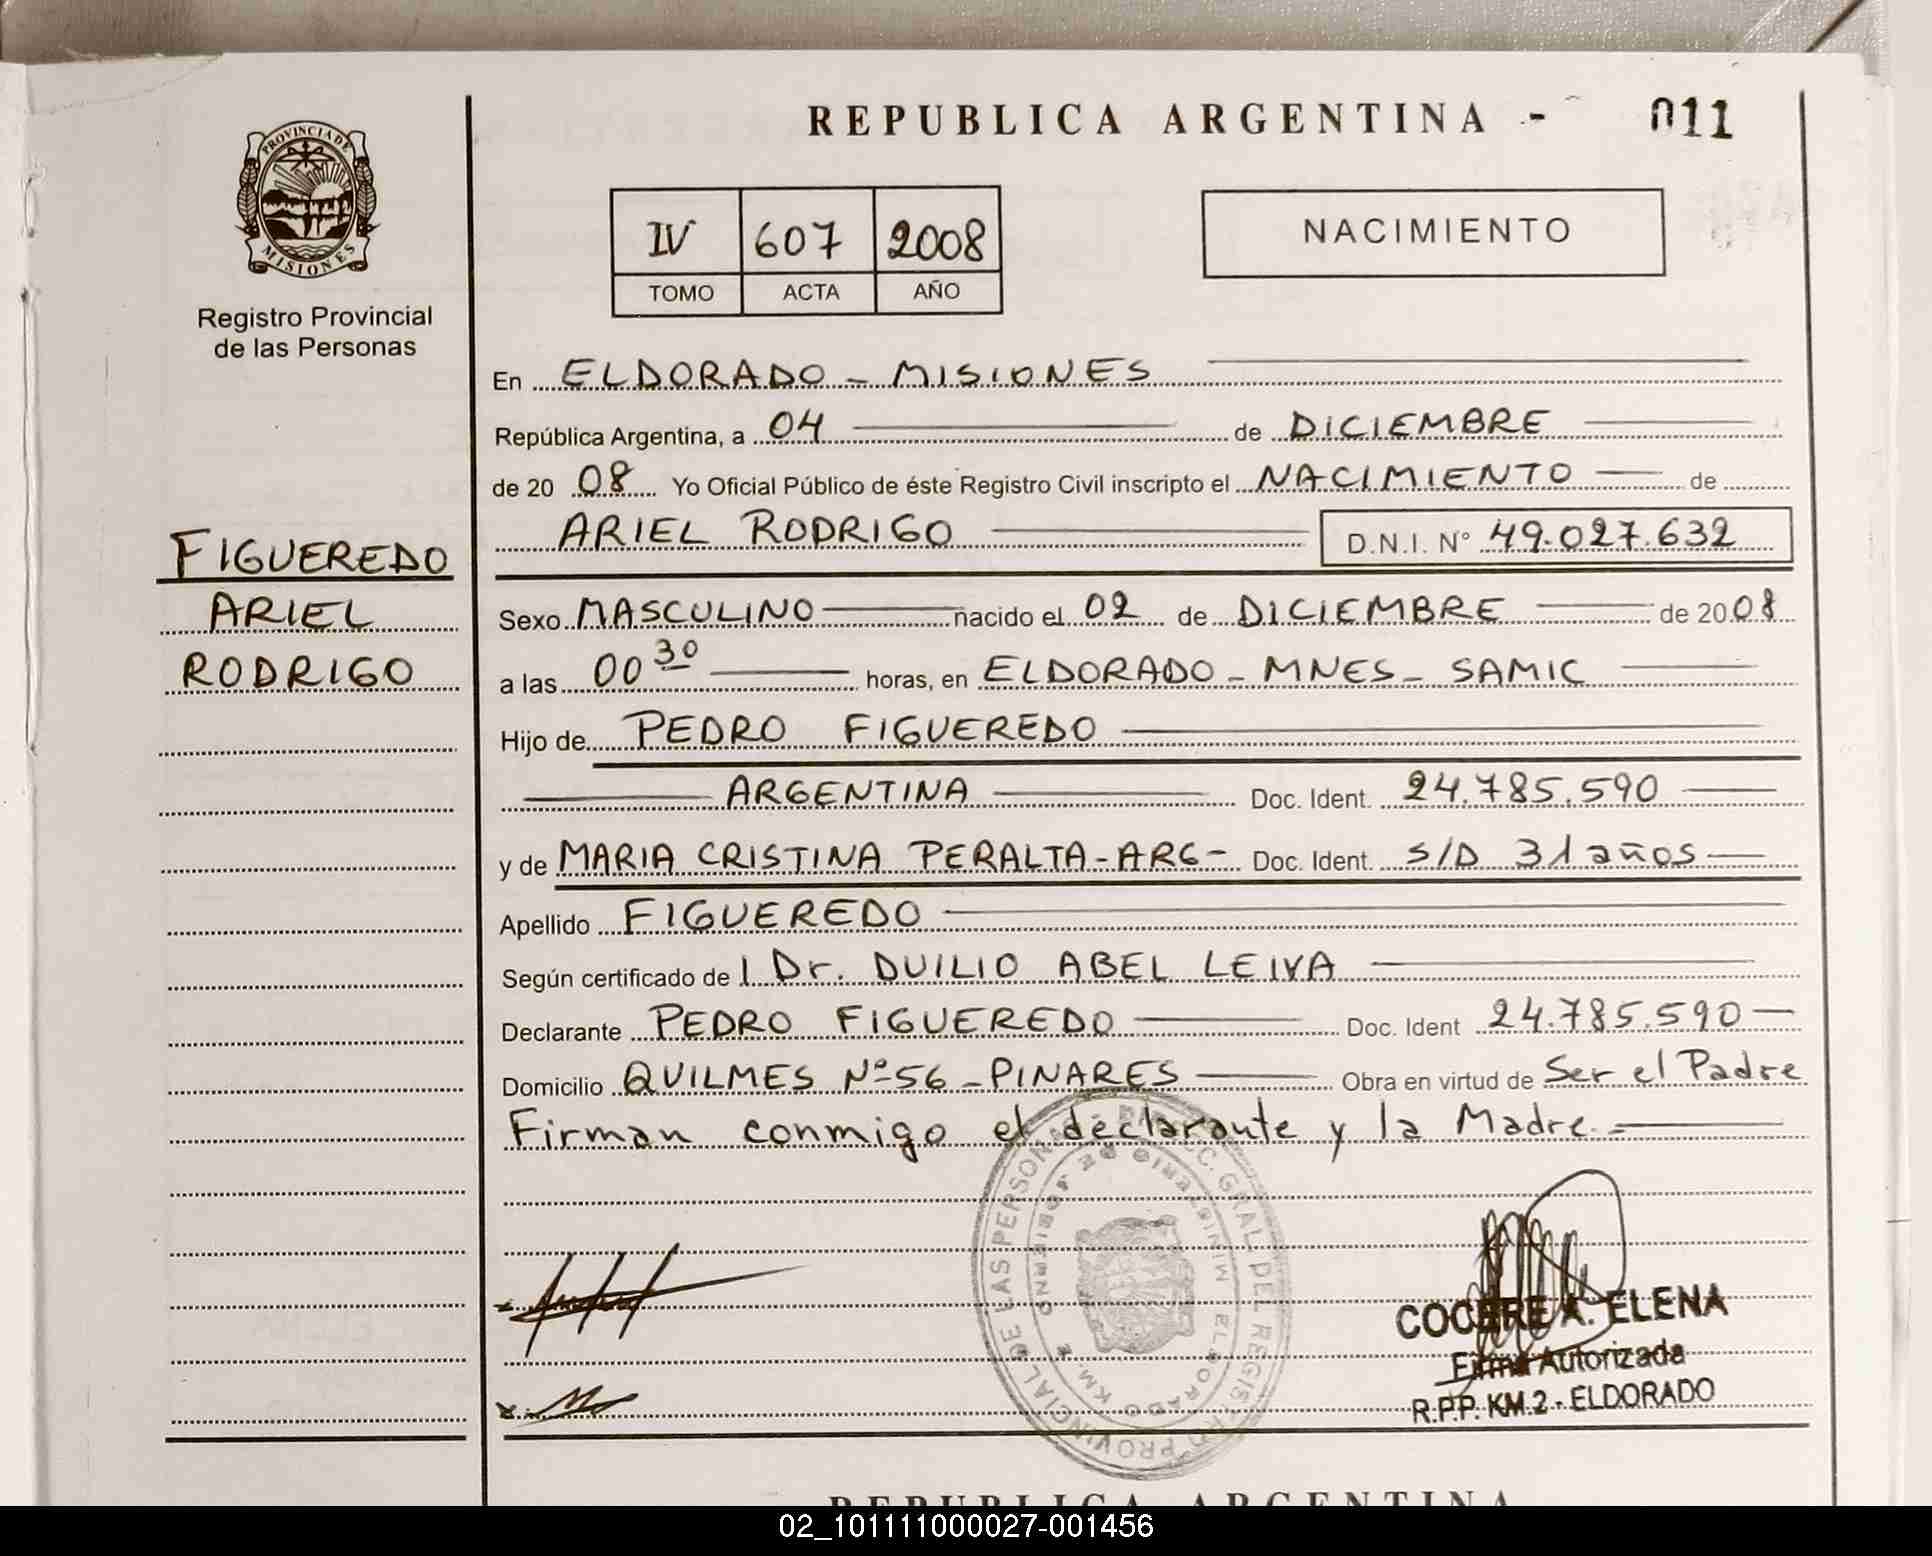 REPUBLICA ARGENTINA - 011
PROVINCIA DE
MISIONES
Registro Provincial
de las Personas
IV 607 2008
TOMO ACTA AÑO
NACIMIENTO
En ELDORADO - MISIONES
República Argentina, a 04 de DICIEMBRE
de 20 08 Yo Oficial Público de éste Registro Civil inscripto el NACIMIENTO de
ARIEL RODRIGO D.N.I. N° 49.027.632
FIGUEREDO
ARIEL
RODRIGO
Sexo MASCULINO nacido el 02 de DICIEMBRE de 2008
a las 00 30 horas, en ELDORADO - MNES - SAMIC
Hijo de PEDRO FIGUEREDO
ARGENTINA Doc. Ident. 24.785.590
y de MARIA CRISTINA PERALTA - ARG - Doc. Ident. S/D 31 años
Apellido FIGUEREDO
Según certificado de l Dr. DUILIO ABEL LEIVA
Declarante PEDRO FIGUEREDO Doc. Ident 24.785.590
Domicilio QUILMES Nº 56 - PINARES Obra en virtud de Ser el Padre
Firman conmigo el declarante y la Madre.=
DIRECC. GRAL. DEL REGISTRO PROVINCIAL DE LAS PERSONAS
MINISTERIO DE GOBIERNO
ELDORADO KM. 2
COCERE A. ELENA
Firma Autorizada
R.P.P. KM.2 - ELDORADO
REPUBLICA ARGENTINA
02_101111000027-001456